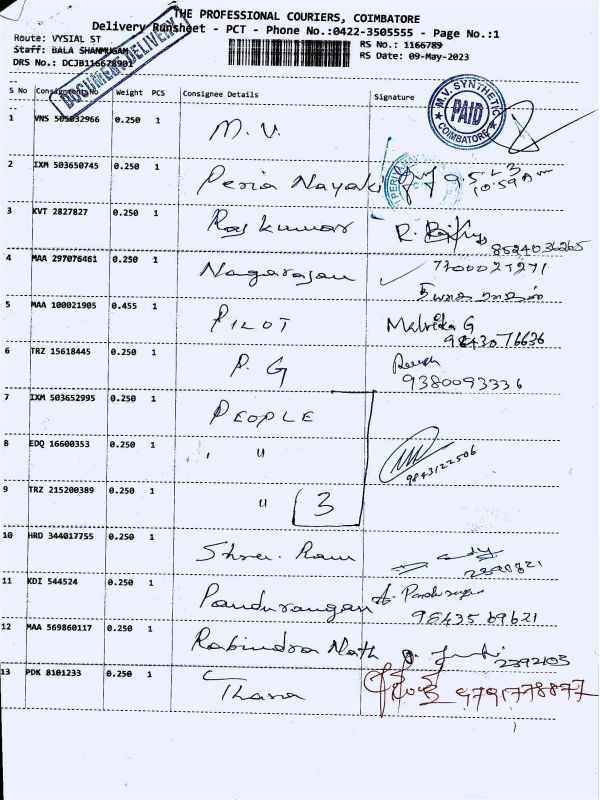 THE PROFESSIONAL COURIERS, COIMBATORE
Delivery Runsheet - PCT - Phone No.:0422-3505555 - Page No.:1
Route: VYSIAL ST
RS No.: 1166789
Staff: BALA SHANMUGAM
RS Date: 09-May-2023
DRS No.: DCJB116678901
DOCUMENT DELIVERY
S No Consignment No Weight PCS Consignee Details Signature
M.V. SYNTHETIC
PAID
COIMBATORE
1 VNS 505032966 0.250 1 M. V.
2 IXM 503650745 0.250 1 Peria Nayaki 9.5.23
10:59 Am
3 KVT 2827827 0.250 1 Raj kumar R.
8524036265
4 MAA 297076461 0.250 1 Nagarajan
5 MAA 100021905 0.455 1 PILOT Malvika G
9843076636
6 TRZ 15618445 0.250 1 P. G
9380093336
7 IXM 503652995 0.250 1 PEOPLE
8 EDQ 16600353 0.250 1 "
9843122506
9 TRZ 215200389 0.250 1 " 3
10 HRD 344017755 0.250 1 Shree. Ram
11 KDI 544524 0.250 1 Pandurangan
9843569621
12 MAA 569860117 0.250 1 Rabindra Nath 2392103
13 PDK 8101233 0.250 1 Thara 9791778877